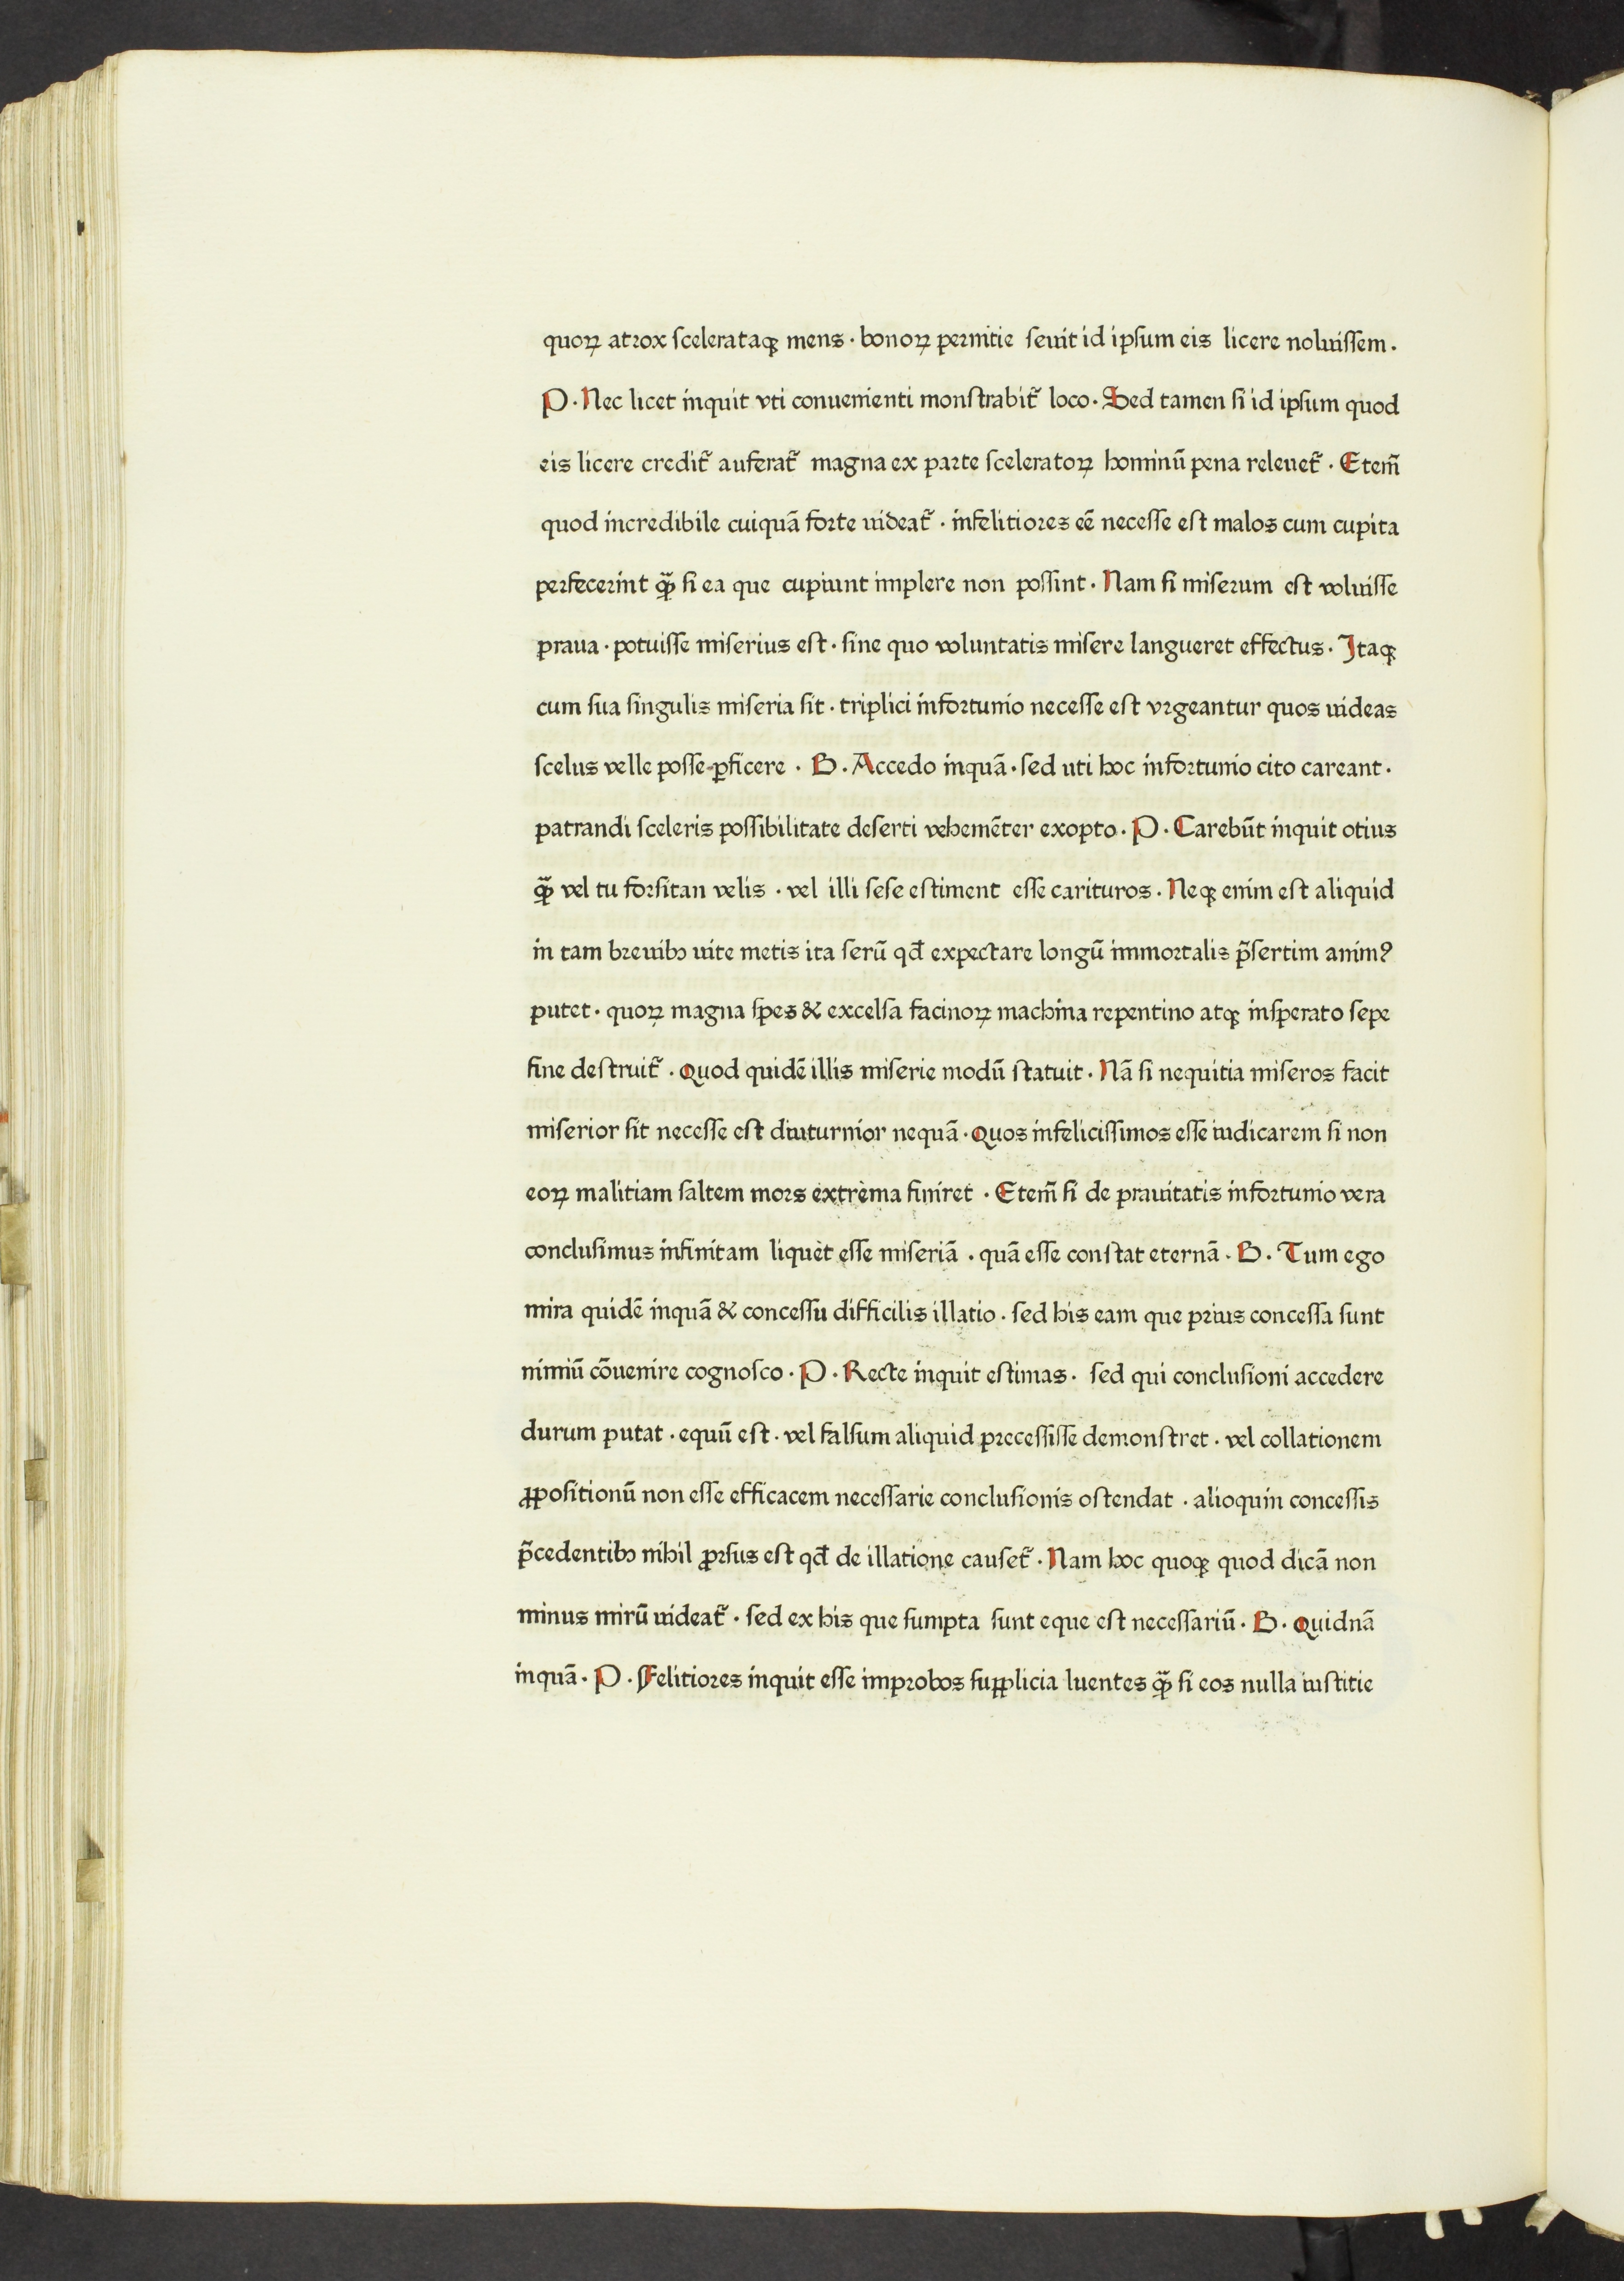 quoꝝ atrox ſcelerataqꝫ mens · bonoꝝ pernitie ſeuit id ipſum eis licere noluiſſem ·
P · Nec licet inquit vti conuenienti monſtrabit᷑ loco · Sed tamen ſi id ipſum quod
eis licere credit᷑ auferat᷑ magna ex parte ſceleratoꝝ hominū pena releuet᷑ · Etem̄
quod incredibile cuiquā forte uideat᷑ · infelitiores eē neceſſe eſt malos cum cupita
perfecerint qꝫ̄ ſi ea que cupiunt implere non poſſint · Nam ſi miſerum eſt voluiſſe
praua · potuiſſe miſerius eſt · ſine quo voluntatis miſere langueret effectus · Itaqꝫ
cum ſua ſingulis miſeria ſit · triplici infortunio neceſſe eſt vrgeantur quos uideas
ſcelus velle poſſe ꝑficere · B · Accedo inquā · ſed uti hoc infortunio cito careant ·
patrandi ſceleris poſſibilitate deſerti vehemēter exopto · P · Carebūt inquit otius
qꝫ̄ vel tu forſitan velis · vel illi ſeſe eſtiment eſſe carituros · Neqꝫ enim eſt aliquid
in tam breuibꝰ uite metis ita ſerū qd̄ expectare longū immortalis p̄ſertim animꝰ
putet · quoꝝ magna ſpes & excelſa facinoꝝ machina repentino atqꝫ inſperato ſepe
fine deſtruit᷑ · Quod quidē illis miſerie modū ſtatuit · Nā ſi nequitia miſeros facit
miſerior ſit neceſſe eſt diuturnior nequā · Quos infeliciſſimos eſſe iudicarem ſi non
eoꝝ malitiam ſaltem mors extrema finiret · Etem̄ ſi de prauitatis infortunio vera
concluſimus infinitam liquet eſſe miſeriā · quā eſſe conſtat eternā · B · Tum ego
mira quidē inquā & conceſſu difficilis illatio · ſed his eam que prius conceſſa ſunt
nimiū cōuenire cognoſco · P · Recte inquit eſtimas · ſed qui concluſioni accedere
durum putat · equū eſt · vel falſum aliquid preceſſiſſe demonſtret · vel collationem
ꝓpoſitionū non eſſe efficacem neceſſarie concluſionis oſtendat · alioquin conceſſis
p̄cedentibꝰ nihil ꝓrſus eſt qd̄ de illatione cauſet᷑ · Nam hoc quoqꝫ quod dicā non
minus mirū uideat᷑ · ſed ex his que ſumpta ſunt eque eſt neceſſariū · B · Quidnā
inquā · P · Felitiores inquit eſſe improbos ſupplicia luentes qꝫ̄ ſi eos nulla iuſtitie